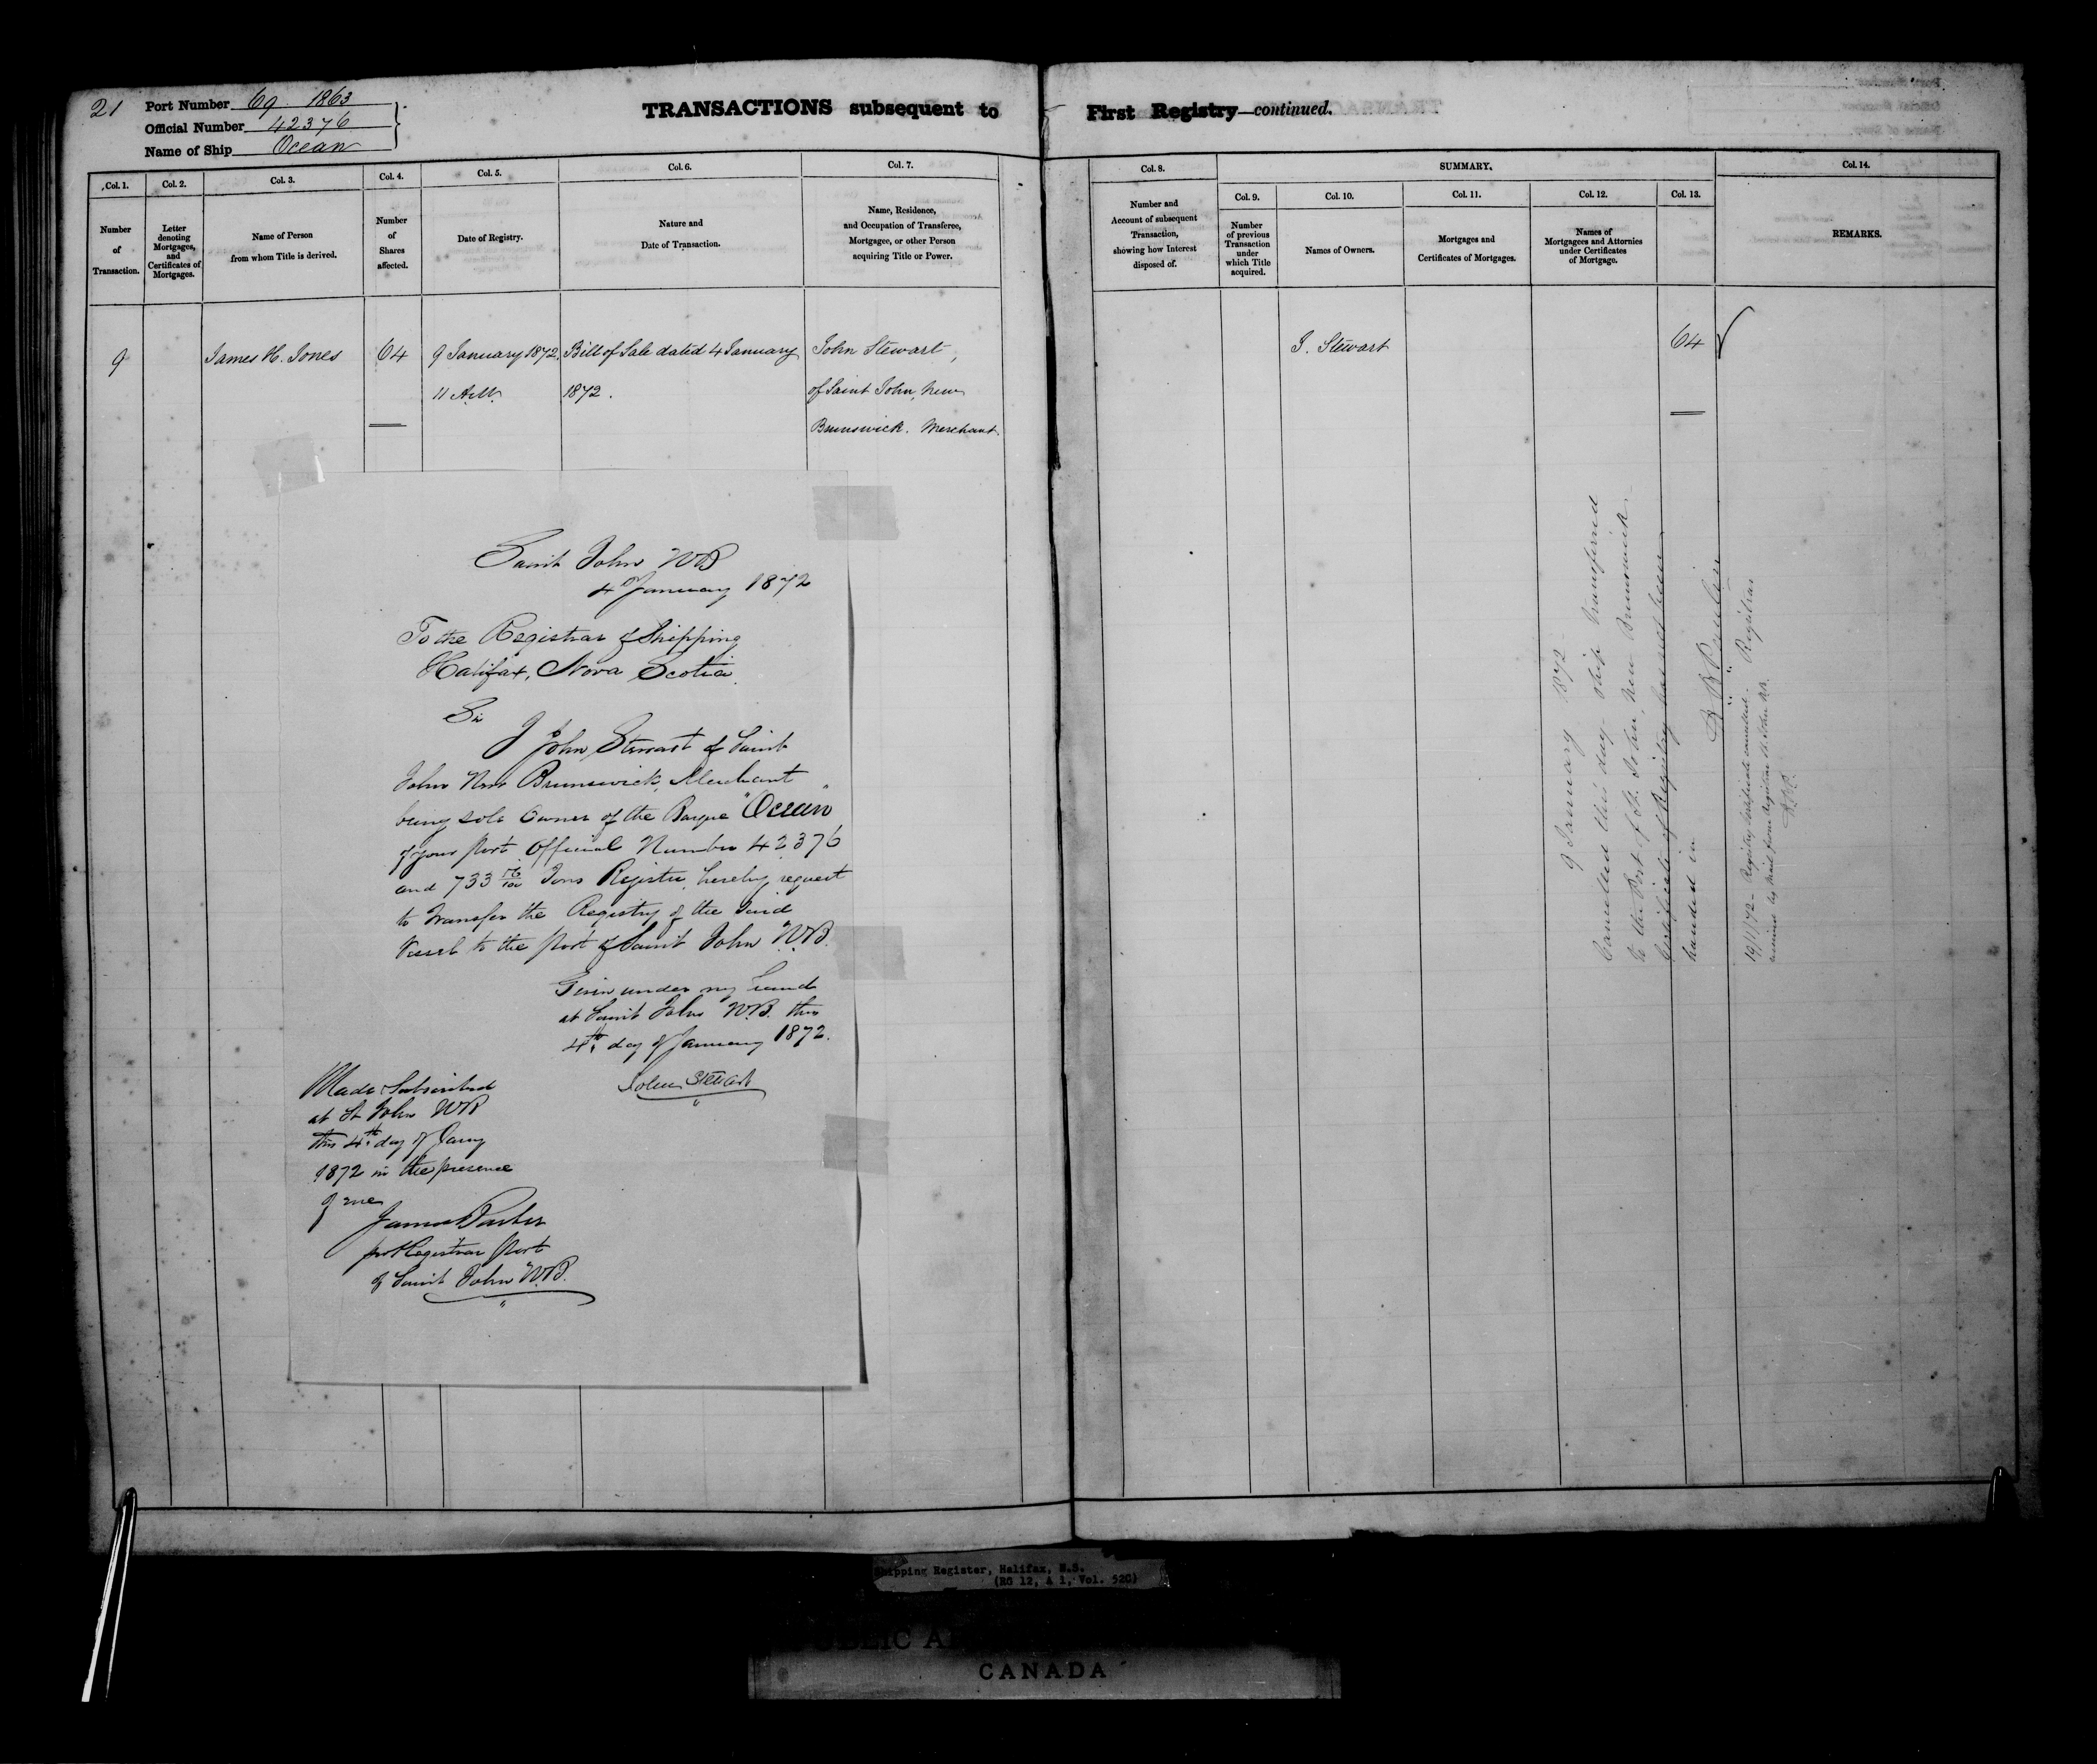 21
Port Number 69 1863
Official Number 42376
Name of Ship Ocean
TRANSACTIONS subsequent to First Registry—continued.
Col. 1.
Number
of
Transaction.
Col. 2.
Letter
denoting
Mortgages,
and
Certificates of
Mortgages.
Col. 3.
Name of Person
from whom Title is derived.
Col. 4.
Number
of
Shares
affected.
Col. 5.
Date of Registry.
Col. 6.
Nature and
Date of Transaction.
Col. 7.
Name, Residence,
and Occupation of Transferee,
Mortgagee, or other Person
acquiring Title or Power.
Col. 8.
Number and
Account of subsequent
Transaction,
showing how Interest
disposed of.
SUMMARY.
Col. 9.
Number
of previous
Transaction
under
which Title
acquired.
Col. 10.
Names of Owners.
Col. 11.
Mortgages and
Certificates of Mortgages.
Col. 12.
Names of
Mortgagees and Attornies
under Certificates
of Mortgage.
Col. 13.
Col. 14.
REMARKS.
9
James H. Jones
64
9 January 1872
11 A.M.
Bill of Sale dated 4 January
1872.
John Stewart,
of Saint John, New
Brunswick. Merchant.
J. Stewart
64
Saint John NB
4 January 1872
To the Registrar of Shipping
Halifax, Nova Scotia.
Sir
I John Stewart of Saint
John New Brunswick, Merchant
being sole Owner of the Barque "Ocean"
of your Port Official Number 42376
and 733 76/100 Tons Register, hereby request
to transfer the Registry of the said
Vessel to the Port of Saint John N.B.
Given under my hand
at Saint John N.B. this
4th day of January 1872.
John Stewart
Made & Subscribed
at St John NB
this 4th day of Jany
1872 in the presence
of me
James Parker
pro Registrar Port
of Saint John N.B.
9 January 1872
Cancelled this day. Ship transferred
to the Port of St. John, New Brunswick.
Certificate of Registry has not been
handed in
Registrar
19/1/72 - Registry Certificate cancelled.
received by mail from Registrar St John NB.
Shipping Register, Halifax, N.S.
(RG 12, A 1, Vol. 520)
CANADA